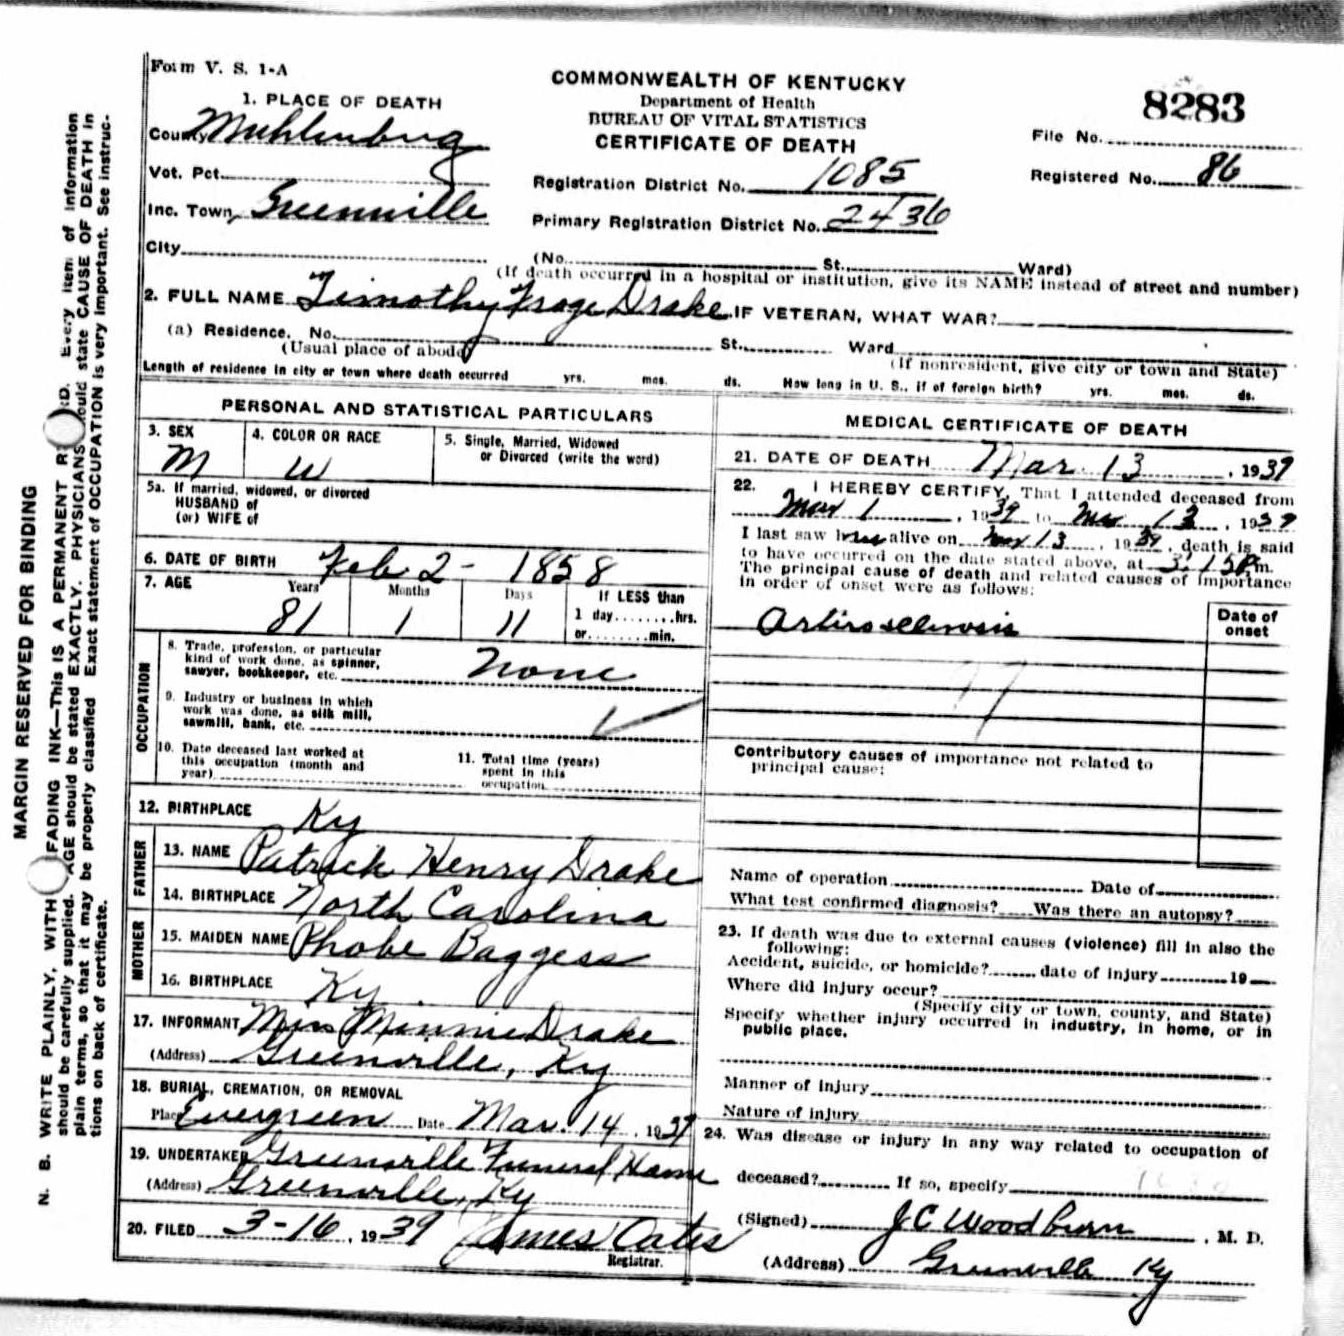 Form V. S. 1-A
COMMONWEALTH OF KENTUCKY
Department of Health
BUREAU OF VITAL STATISTICS
CERTIFICATE OF DEATH
8283
File No.
Registered No. 86
1. PLACE OF DEATH
County Muhlenburg
Vot. Pct.
Inc. Town Greenville
City
Registration District No. 1085
Primary Registration District No. 2436
(No. St. Ward)
(If death occurred in a hospital or institution, give its NAME instead of street and number)
2. FULL NAME Timothy Drake IF VETERAN, WHAT WAR?
(a) Residence. No. St. Ward
(Usual place of abode) (If nonresident, give city or town and State)
Length of residence in city or town where death occurred yrs. mos. ds. How long in U. S., if of foreign birth? yrs. mos. ds.
PERSONAL AND STATISTICAL PARTICULARS
3. SEX
M
4. COLOR OR RACE
W
5. Single, Married, Widowed
or Divorced (write the word)
5a. If married, widowed, or divorced
HUSBAND of
(or) WIFE of
6. DATE OF BIRTH Feb 2 - 1858
7. AGE Years Months Days If LESS than
81 1 11 1 day........hrs.
or........min.
OCCUPATION
8. Trade, profession, or particular
kind of work done, as spinner,
sawyer, bookkeeper, etc. None
9. Industry or business in which
work was done, as silk mill,
sawmill, bank, etc.
10. Date deceased last worked at
this occupation (month and
year)
11. Total time (years)
spent in this
occupation
12. BIRTHPLACE Ky
FATHER
13. NAME Patrick Henry Drake
14. BIRTHPLACE North Carolina
MOTHER
15. MAIDEN NAME Phobe Baggess
16. BIRTHPLACE Ky.
17. INFORMANT Minnie Drake
(Address) Greenville, Ky
18. BURIAL, CREMATION, OR REMOVAL
Place Evergreen Date Mar. 14, 1939
19. UNDERTAKER Greenville Funeral Home
(Address) Greenville, Ky
20. FILED 3-16, 1939 James Oates
Registrar.
MEDICAL CERTIFICATE OF DEATH
21. DATE OF DEATH Mar. 13, 1939
22. I HEREBY CERTIFY, That I attended deceased from
Mar 1, 1939 to Mar 13, 1939
I last saw alive on Mar 13, 1939, death is said
to have occurred on the date stated above, at 3:15 P m.
The principal cause of death and related causes of importance
in order of onset were as follows:
Date of
onset
Artirosclerosis
97
Contributory causes of importance not related to
principal cause:
Name of operation Date of
What test confirmed diagnosis? Was there an autopsy?
23. If death was due to external causes (violence) fill in also the
following:
Accident, suicide, or homicide? date of injury 19
Where did injury occur?
(Specify city or town, county, and State)
Specify whether injury occurred in industry, in home, or in
public place.
Manner of injury
Nature of injury
24. Was disease or injury in any way related to occupation of
deceased? If so, specify
(Signed) J C Woodburn, M. D.
(Address) Greenville Ky
MARGIN RESERVED FOR BINDING
N. B. WRITE PLAINLY, WITH FADING INK—THIS IS A PERMANENT Every item of information
should be carefully supplied. AGE should be stated EXACTLY. PHYSICIANS should state CAUSE OF DEATH in
plain terms, so that it may be properly classified. Exact statement of OCCUPATION is very important. See instruc-
tions on back of certificate.